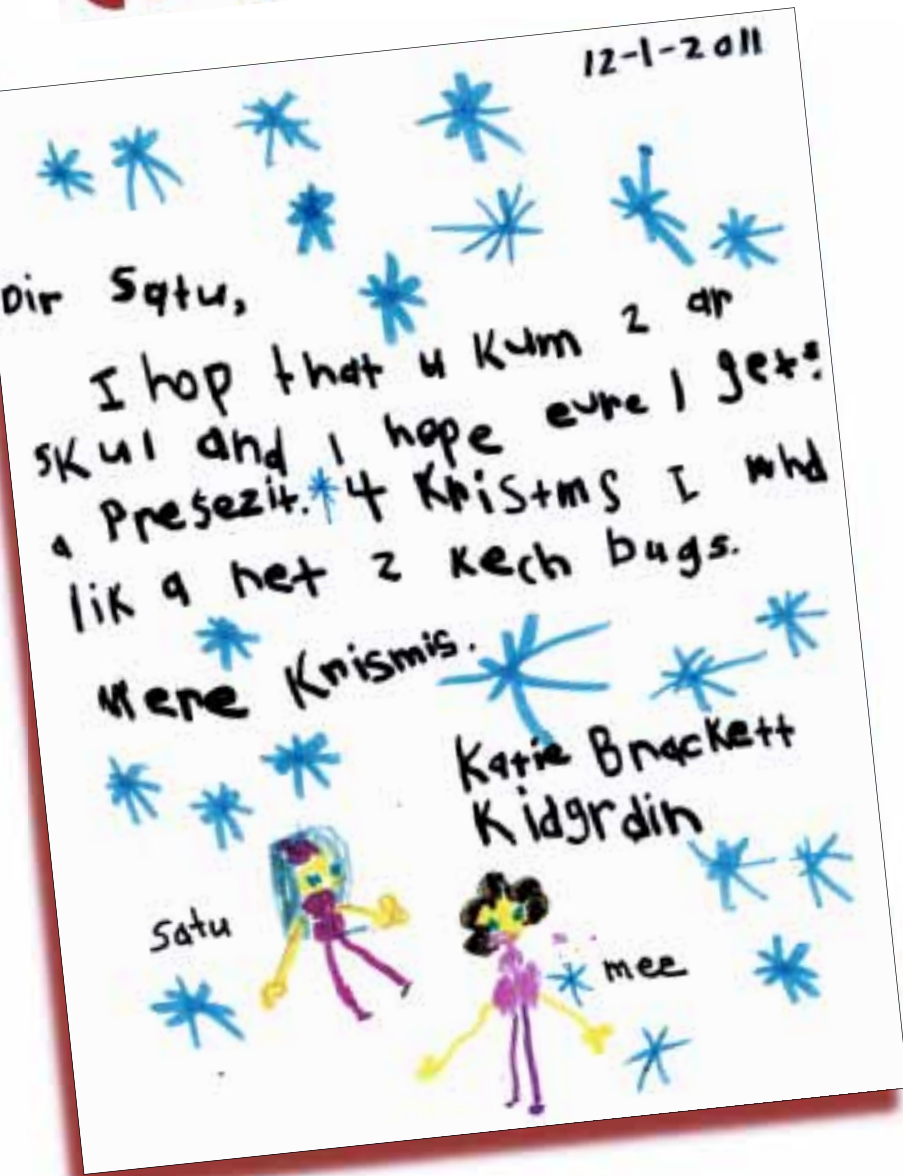 12-1-2011
Dir Satu,
I hop that u kum 2 ar
skul and I hope eure 1 get:
a Presezit. 4 Kristms I whd
lik a net 2 kech bugs.
Mere Krismis.
Katie Brackett
Kidgrdin
Satu
mee